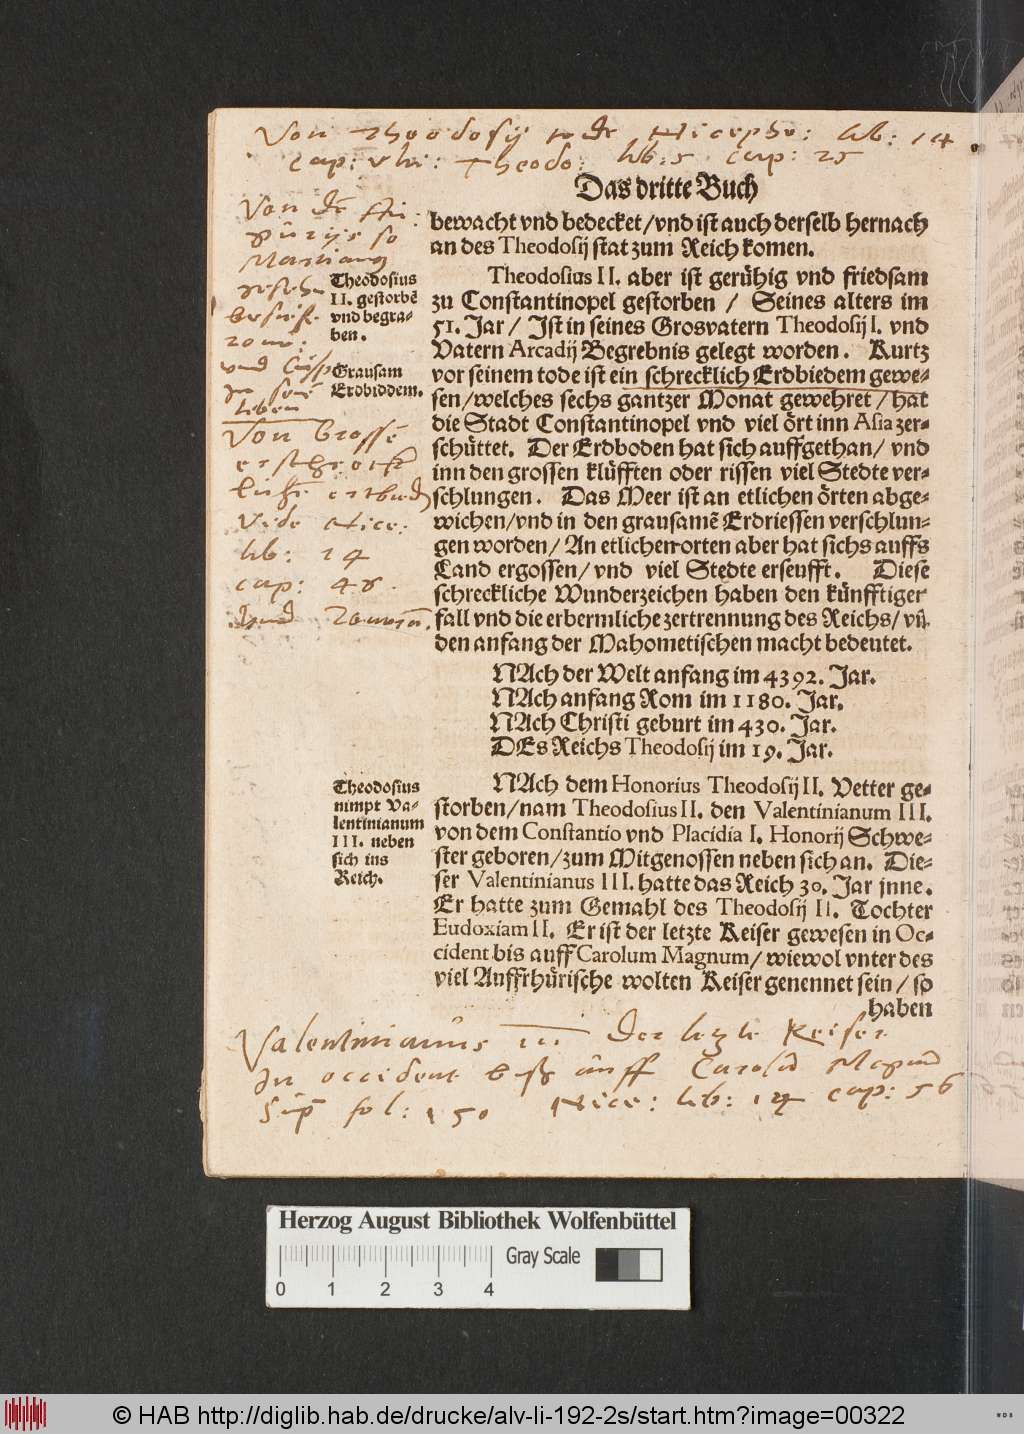 Von Theodosij tode Nicepho: lib: 14
cap: vlti: Theodo: lib: 5 cap: 25
Das dritte Buch
bewacht vnd bedecket/vnd ist auch derselb hernach
an des Theodosij stat zum Reich komen.
Theodosius II. aber ist gerühig vnd friedsam
zu Constantinopel gestorben / Seines alters im
51. Jar / Jst in seines Grosvatern Theodosij I. vnd
Vatern Arcadij Begrebnis gelegt worden. Kurtz
vor seinem tode ist ein schrecklich Erdbiedem gewe-
sen/welches sechs gantzer Monat gewehret / hat
die Stadt Constantinopel vnd viel ört inn Asia zer-
schüttet. Der Erdboden hat sich auffgethan/ vnd
inn den grossen klüfften oder rissen viel Stedte ver-
schlungen. Das Meer ist an etlichen örten abge-
wichen/vnd in den grausamẽ Erdriessen verschlun-
gen worden/ An etlichen orten aber hat sichs auffs
Land ergossen/ vnd viel Stedte erseufft. Diese
schreckliche Wunderzeichen haben den künfftiger
fall vnd die erbermliche zertrennung des Reichs/ vñ
den anfang der Mahometischen macht bedeutet.
NAch der Welt anfang im 4392. Jar.
NAch anfang Rom im 1180. Jar.
NAch Christi geburt im 430. Jar.
DEs Reichs Theodosij im 19. Jar.
NAch dem Honorius Theodosij II. Vetter ge-
storben/nam Theodosius II. den Valentinianum III.
von dem Constantio vnd Placidia I. Honorij Schwe-
ster geboren/zum Mitgenossen neben sich an. Die-
ser Valentinianus III. hatte das Reich 30. Jar jnne.
Er hatte zum Gemahl des Theodosij II. Tochter
Eudoxiam II. Er ist der letzte Keiser gewesen in Oc-
cident bis auff Carolum Magnum/ wiewol vnter des
viel Auffrhürische wolten Keiser genennet sein / so
haben
Theodosius
II. gestorbẽ
vnd begra-
ben.
Grausam
Erdbiddem.
Theodosius
nimpt Va-
lentinianum
III. neben
sich ins
Reich.
Von
so
Martiano
vnd
leben
Von grossẽ
Vide Nice:
lib: 14
cap: 46
Valentinianus III Der letzte Keiser
In occident biß auff Carolũ Magnũ
Sup fol: 150 Nice: lib: 14 cap: 56
Herzog August Bibliothek Wolfenbüttel
Gray Scale
0 1 2 3 4
© HAB http://diglib.hab.de/drucke/alv-li-192-2s/start.htm?image=00322